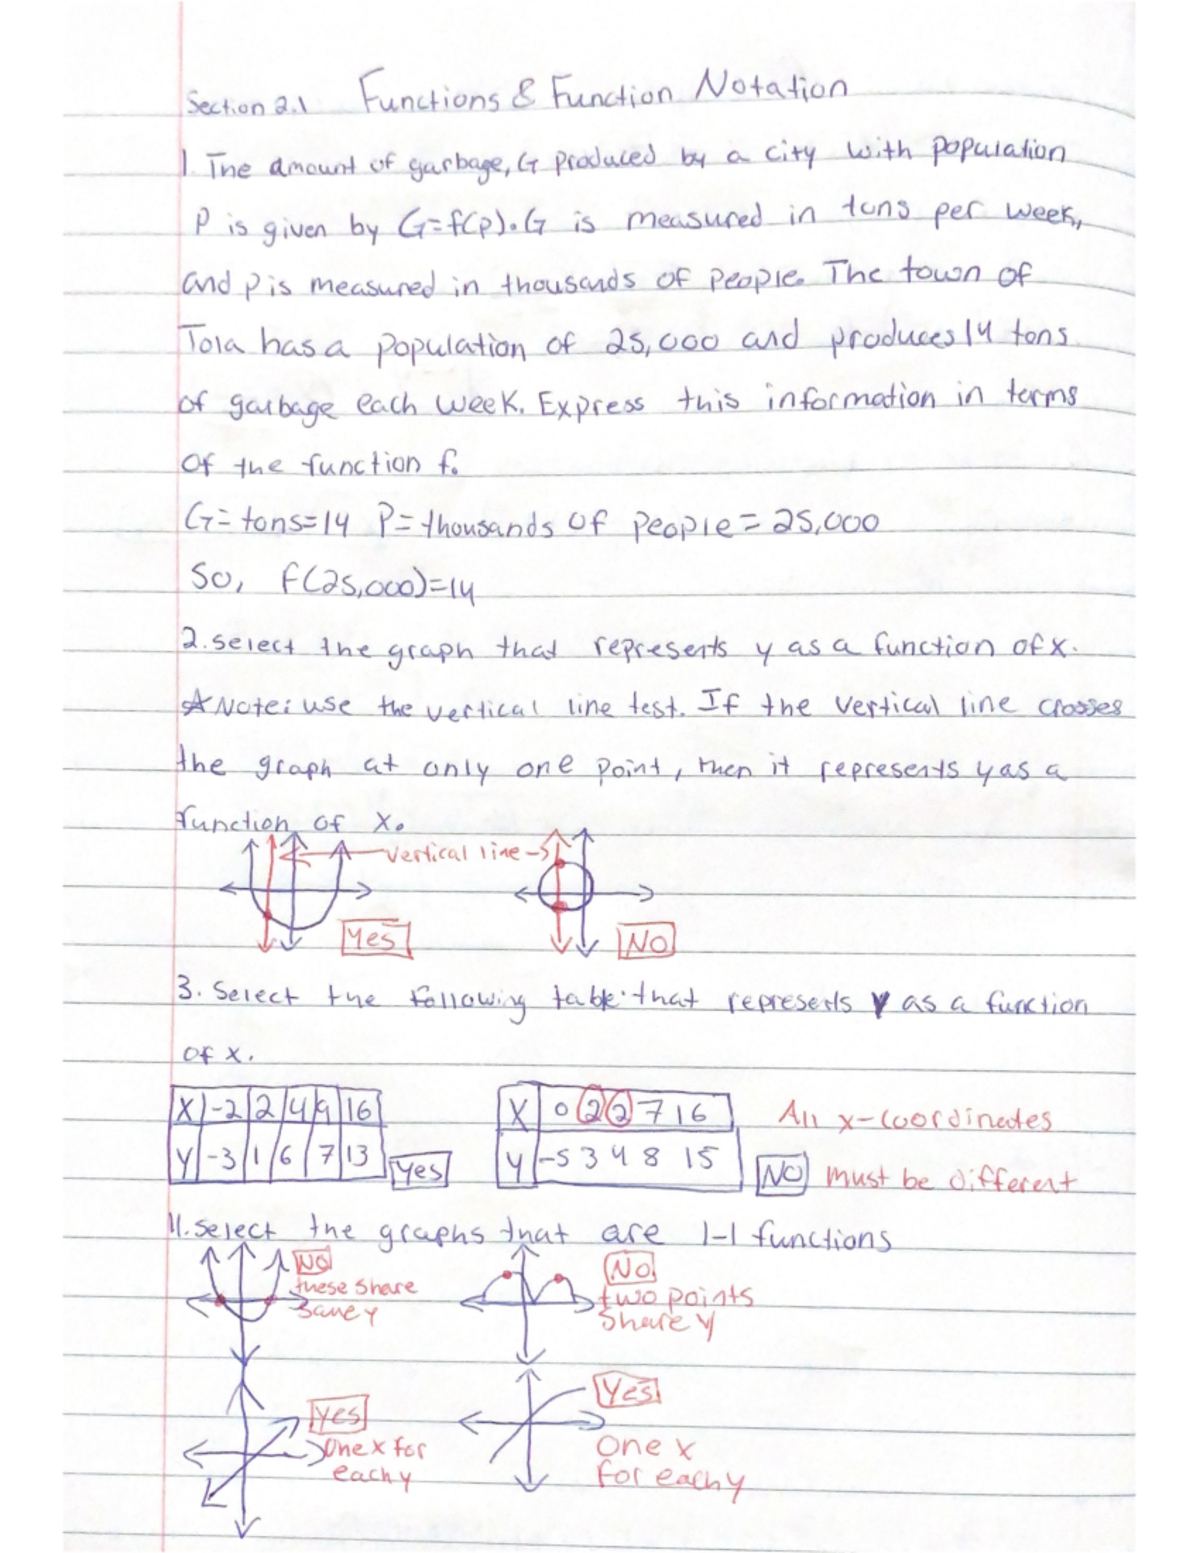 Section 2.1 Functions & Function Notation
1. The amount of garbage, G produced by a city with population
P is given by G=f(p). G is measured in tons per week,
and p is measured in thousands of people. The town of
Tola has a population of 25,000 and produces 14 tons
of garbage each week. Express this information in terms
of the function f.
G=tons=14 P=thousands of people=25,000
So, f(25,000)=14
2. select the graph that represents y as a function of x.
☆ Note: use the vertical line test. If the vertical line crosses
the graph at only one point, then it represents y as a
function of x.
vertical line
Yes NO
3. Select the following table that represents y as a function
of x.
X -2 2 4 9 16
Y -3 1 6 7 13 Yes
X 0 2 2 7 16
Y -5 3 4 8 15 NO
All x-coordinates
must be different
11. Select the graphs that are 1-1 functions
NO
these share
same y
No
two points
share y
yes
One x for
each y
Yes
One x
for each y